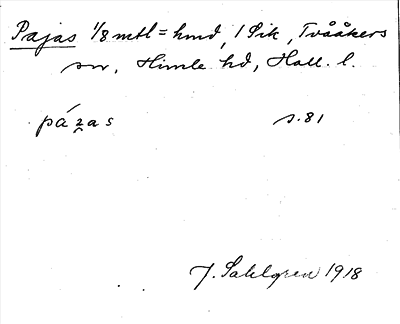 Pajas 1/8 mtl = hmd, 1 Sik, Tvååkers
sn, Himle hd, Hall. l.
pázas s. 81
J. Sahlgren 1918